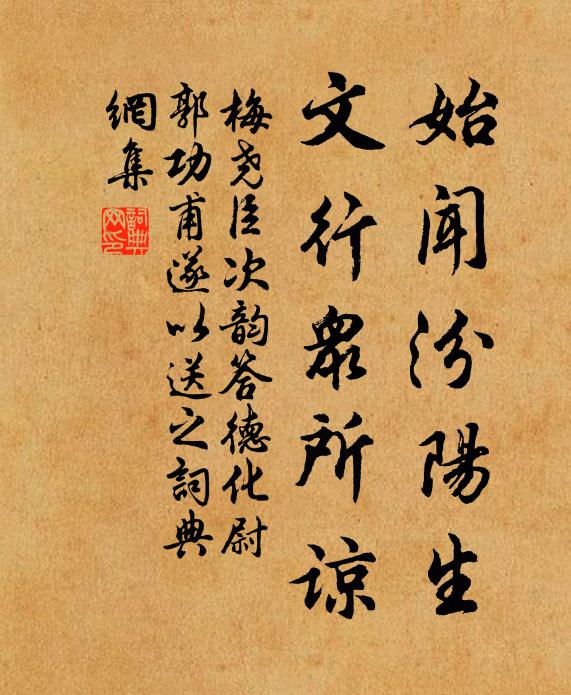 始聞汾陽生
文行衆所谅
梅尧臣次韵答德化尉
郭功甫遂以送之詞典
網集
詞典网印